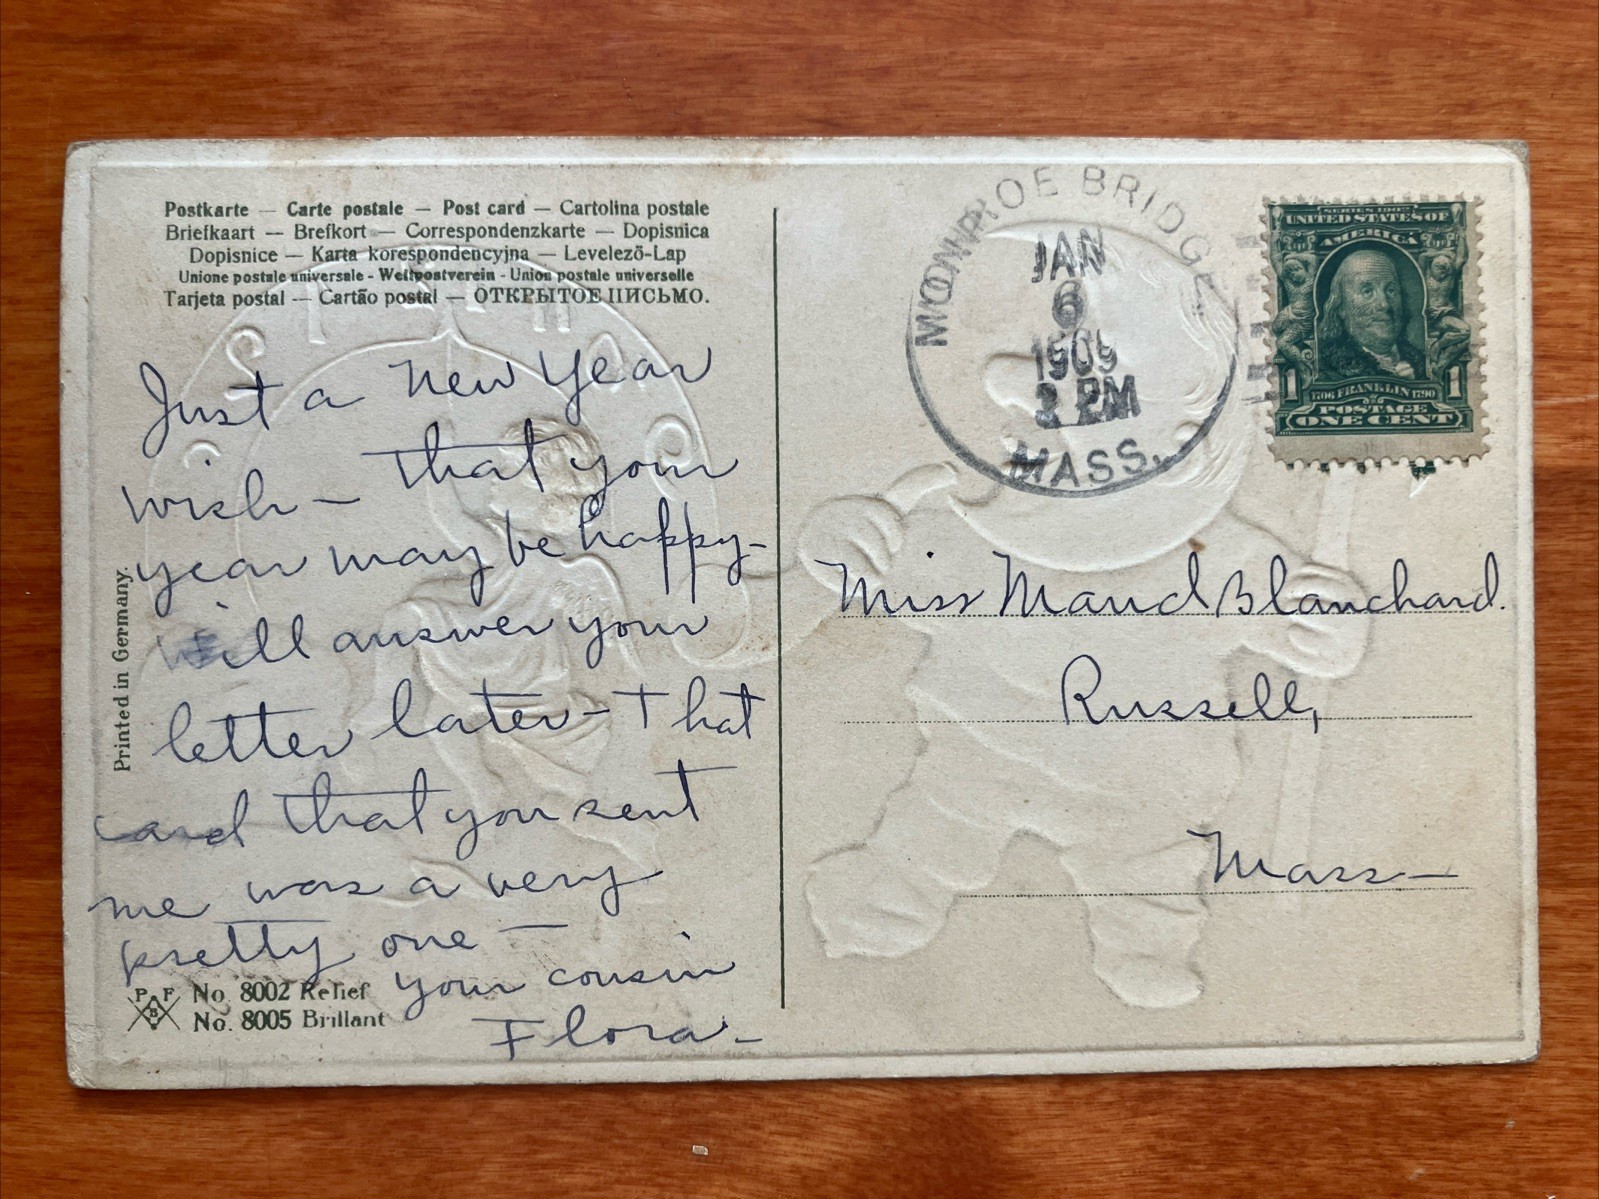 Postkarte — Carte postale — Post card — Cartolina postale
Briefkaart — Brefkort — Correspondenzkarte — Dopisnica
Dopisnice — Karta korespondencyjna — Levelező-Lap
Unione postale universale - Weltpostverein - Union postale universelle
Tarjeta postal — Cartão postal — ОТКРЫТОЕ ПИСЬМО.
Just a New Year
wish — that your
year may be happy —
will answer your
letter later — That
card that you sent
me was a very
pretty one —
your cousin
Flora —
Printed in Germany.
P F
B
No. 8002 Relief
No. 8005 Brillant
MONROE BRIDGE
JAN
6
1909
PM
MASS.
SERIES 1902
UNITED STATES OF
AMERICA
1706 FRANKLIN 1790
1 1
POSTAGE
ONE CENT
Miss Maud Blanchard.
Russell,
Mass —